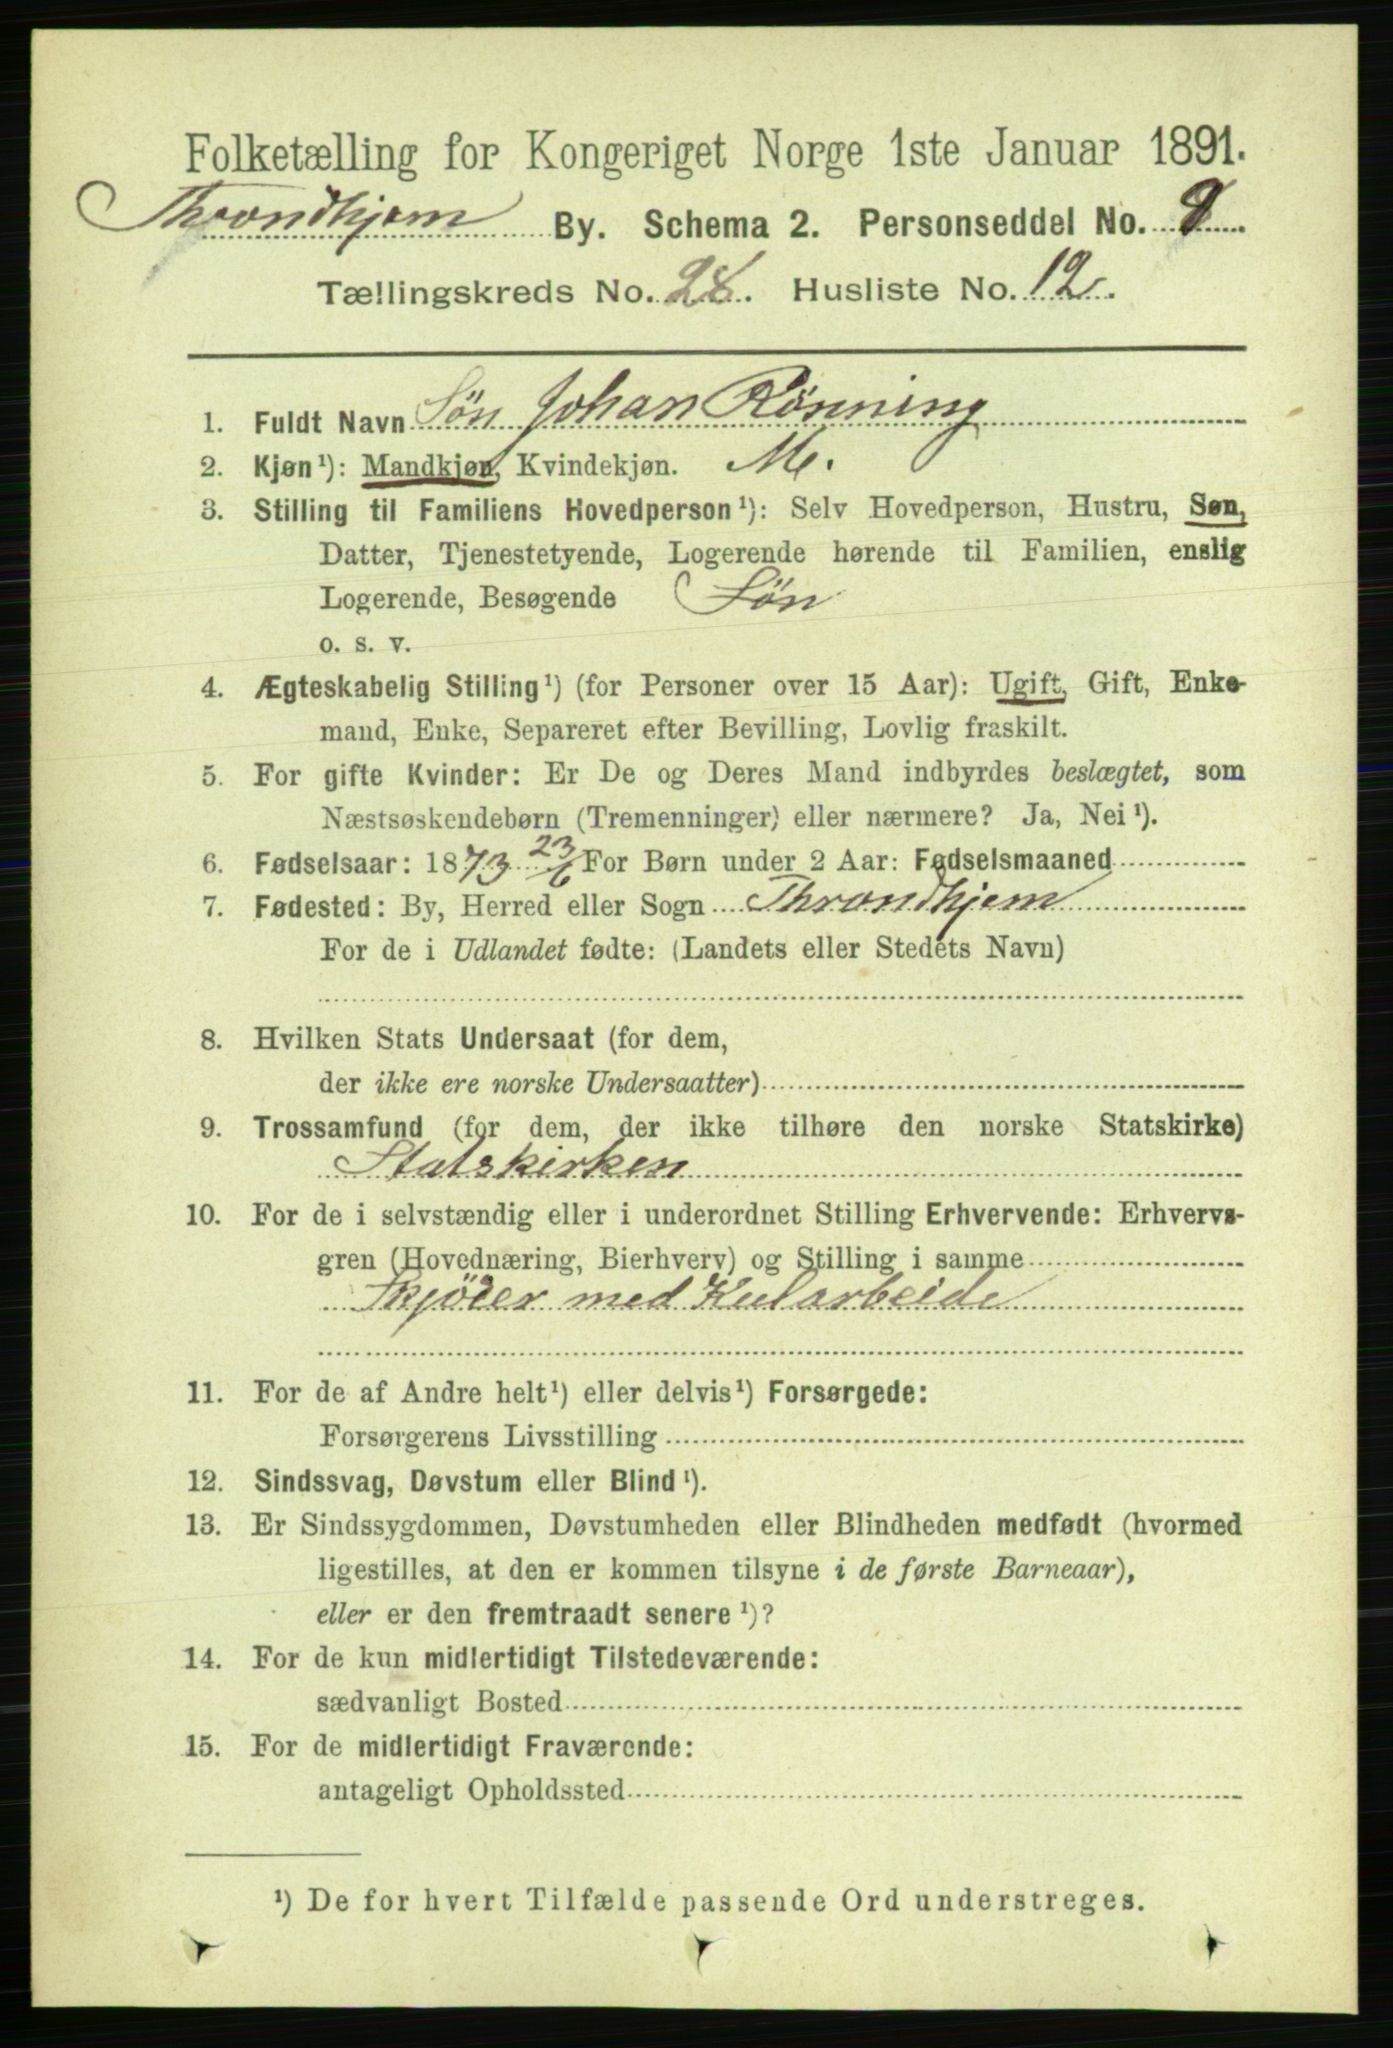 Folketælling for Kongeriget Norge 1ste Januar 1891.
Throndhjem By. Schema 2. Personseddel No. 9
Tællingskreds No. 28. Husliste No. 12.
1. Fuldt Navn Søn Johan Rønning
2. Kjøn¹): Mandkjøn, Kvindekjøn. M.
3. Stilling til Familiens Hovedperson¹): Selv Hovedperson, Hustru, Søn,
Datter, Tjenestetyende, Logerende hørende til Familien, enslig
Logerende, Besøgende Søn
o. s. v.
4. Ægteskabelig Stilling¹) (for Personer over 15 Aar): Ugift, Gift, Enke-
mand, Enke, Separeret efter Bevilling, Lovlig fraskilt.
5. For gifte Kvinder: Er De og Deres Mand indbyrdes beslægtet, som
Næstsøskendebørn (Tremenninger) eller nærmere? Ja, Nei¹).
6. Fødselsaar: 1873 23/6 For Børn under 2 Aar: Fødselsmaaned
7. Fødested: By, Herred eller Sogn Throndhjem
For de i Udlandet fødte: (Landets eller Stedets Navn)
8. Hvilken Stats Undersaat (for dem,
der ikke ere norske Undersaatter)
9. Trossamfund (for dem, der ikke tilhøre den norske Statskirke)
Statskirken
10. For de i selvstændig eller i underordnet Stilling Erhvervende: Erhvervs-
gren (Hovednæring, Bierhverv) og Stilling i samme
med
11. For de af Andre helt¹) eller delvis¹) Forsørgede:
Forsørgerens Livsstilling
12. Sindssvag, Døvstum eller Blind¹).
13. Er Sindssygdommen, Døvstumheden eller Blindheden medfødt (hvormed
ligestilles, at den er kommen tilsyne i de første Barneaar),
eller er den fremtraadt senere¹)?
14. For de kun midlertidigt Tilstedeværende:
sædvanligt Bosted
15. For de midlertidigt Fraværende:
antageligt Opholdssted
¹) De for hvert Tilfælde passende Ord understreges.